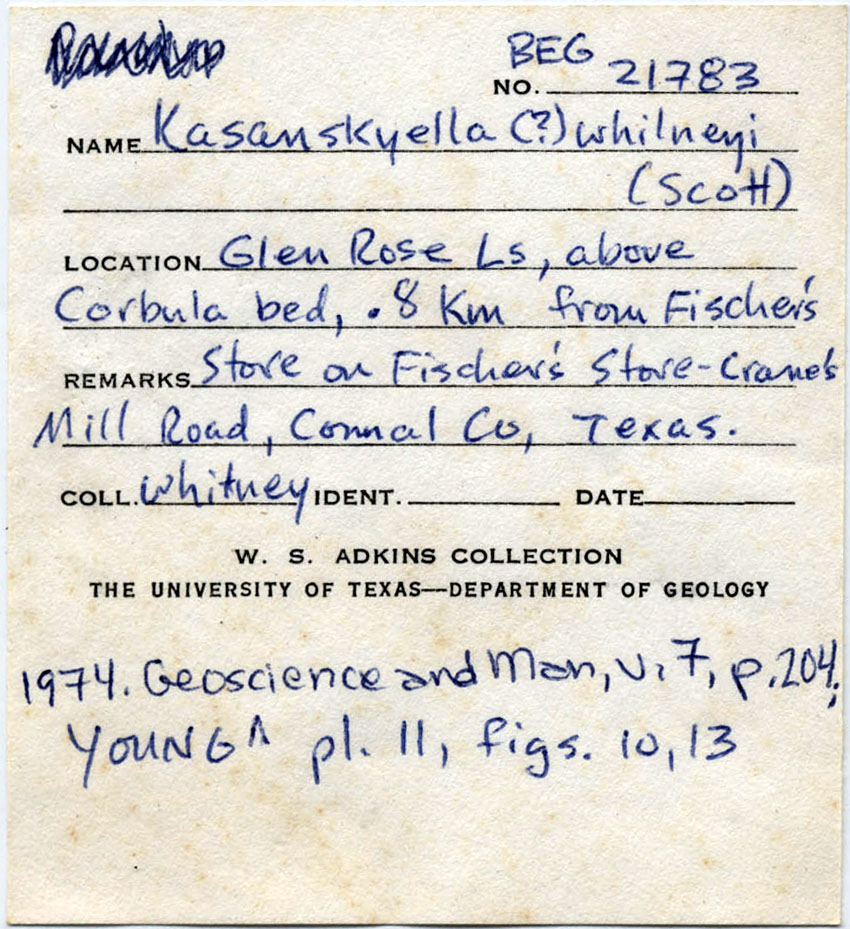 BEG
NO. 21783
NAME Kasanskyella (?) whilneyi
(Scott)
LOCATION Glen Rose Ls, above
Corbula bed, .8 Km from Fischer's
REMARKS Store on Fischer's Store-Crane's
Mill Road, Comal Co, Texas.
COLL. Whitney IDENT. DATE
W. S. ADKINS COLLECTION
THE UNIVERSITY OF TEXAS—DEPARTMENT OF GEOLOGY
1974. Geoscience and Man, v. 7, p. 204;
YOUNG ^ pl. 11, figs. 10, 13